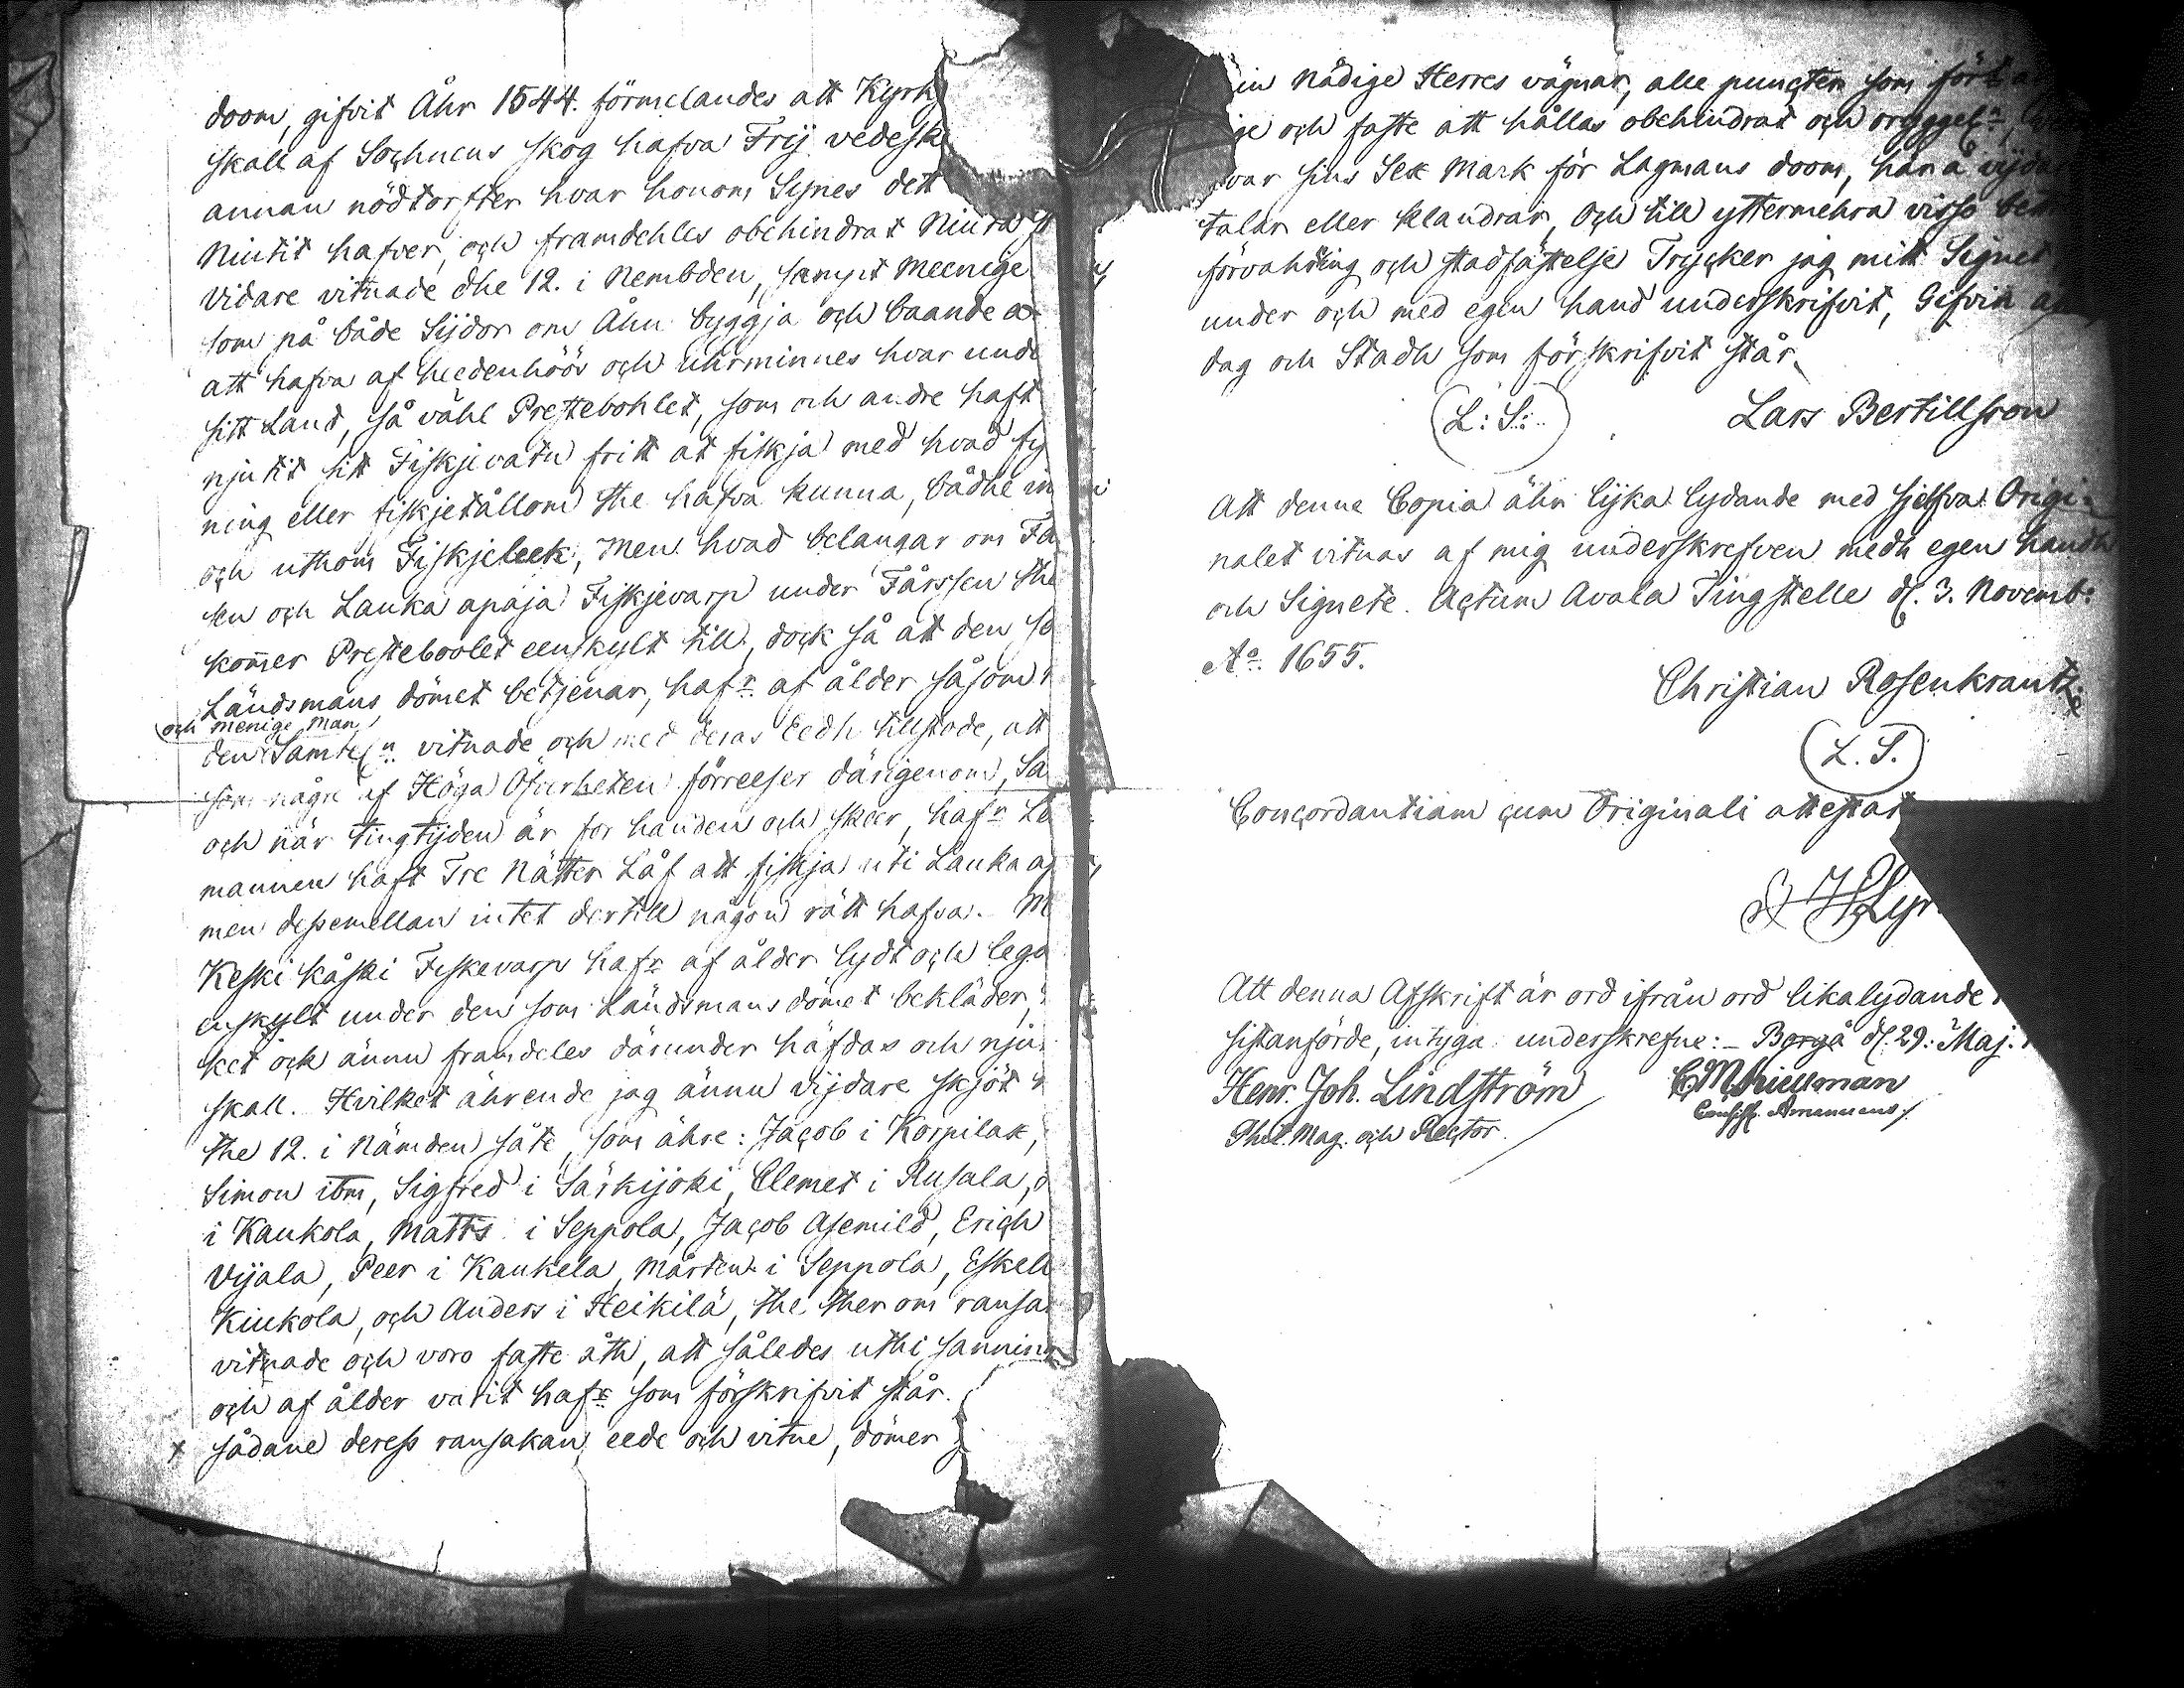 doom, gifvit Åhr 1544. förmelandes att Kyrk
skall af Sochnens skog hafva Frij vedesk
annan nödtorfter hvar honom Synes dett
Niutit hafver, och framdehles obehindrat Niuta
Vidare vitnade dhe 12. i Nembden, sampt Meenige
som på både Sijdor om Åhn byggja och boande
att hafva af heedenhöös och uhrminnes hvar unde
sitt Land, så vähl Prestebohlet, som och andre haft
njutit sitt Fiskjevatn fritt at fiskja med hvad
ning eller fiskjetållom the hafva kunna, bådhe in
och uthom Fiskjeleek, Men hvad belangar om Få
sen och Lauka apaja Fiskjevarp under Fårssen the
kom̄er Presteboolet eenskylt till, dock så att den so
Ländsmans dömet betjenar, hafr af ålder såsom
och menige Man
den Samteln vitnade och med deras Eedh tillstode, att
som några af Höga Öfverheten förreeser därigenom, Sa
och när tingtijden är for handen och skeer, hafr Le
mannen haft Tre Nätter Låf att fiskja uti Lauka a
men dessemellan intet dertill någon rätt hafva. M
Keski kåski Fiskevarp hafr af ålder lydt och lega
enskylt under den som Ländsmansdömet bekläder,
ket och ännu framdeles därunder häfdas och nju
skall. Hvilket ährende jag ännu vijdare skjöt
the 12. i Nämden såte, som ähre: Jacob i Korpilax,
Simon ibm, Sigfred i Särkijoki, Clemet i Rusala,
i Kaukola, Matts i Seppola, Jacob Asemild, Erich
Vijala, Peer i Kaukela, Mårten i Seppola, Eskell
Kiukola, och Anders i Heikilä, the ther om ransa
vitnade och voro faste åth, att således uthi sanning
och af ålder varit hafr som förskrifvit står.
x sådane deress ransakan, eede och vitne, dömer
in Nådige Herres vägnar, alle puncter som först
ge och faste att hållas obehindrat och oryggeln
var sins Sex Mark för Lagmans doom, här å vijda
talar eller klandrar, Och till yttermehra visso
förvahring och stadfästelse Trycker jag mitt Signet
under och med egen hand underskrifvit, Gifvin
dag och Stadh som förskrifvit står
L: S: Lars Bertillsson
Att denne Copia ähr lijka lydande med sjelfva Origi-
nalet vitnas af mig underskrefven medh egen handh
och Signete. Actum Avala Tingstelle d. 3. Novemb:
Ao 1655.
Christian Rosenkrantz
L. S.
Concordantiam cum Originali attestat
Att denna Afskrift är ord ifrån ord likalydande
sistanförde, intyga underskrefne: - Borgå d. 29. Maj.
Henr. Joh. Lindström
Phil. Mag. och Rector.
Consist. Amanuens